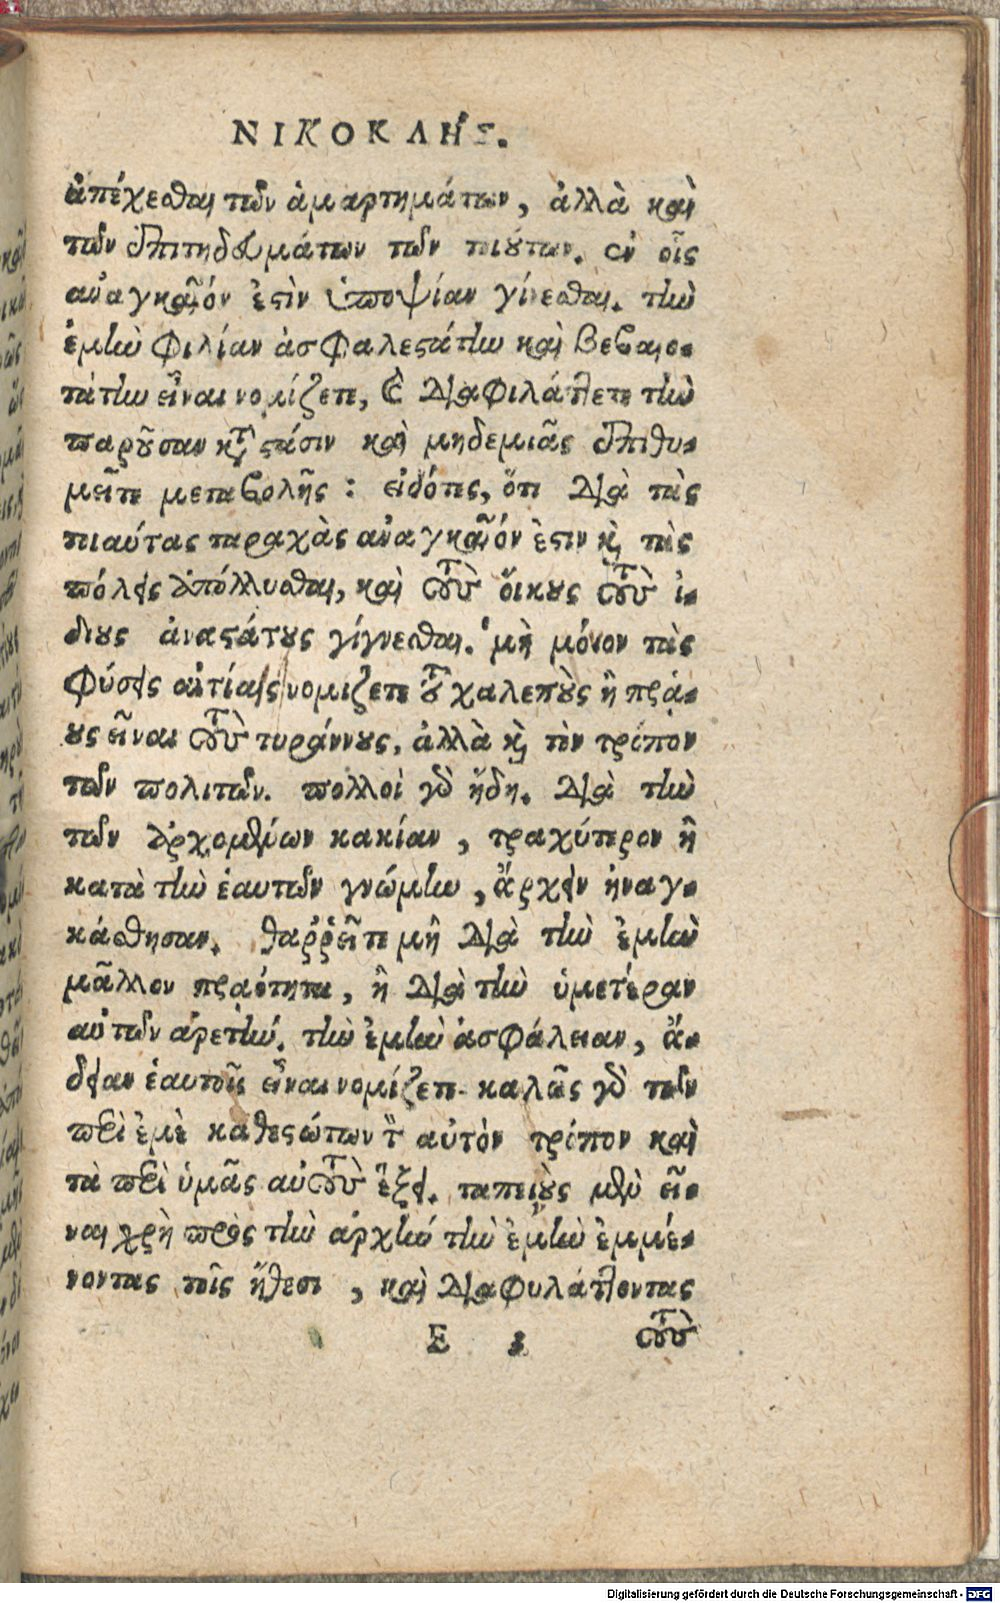 ΝΙΚΟΚΛΗΣ.
ἀπέχεσθαι τῶν ἁμαρτημάτων, ἀλλὰ καὶ
τῶν ἐπιτηδευμάτων τῶν τοιούτων. ἐν οἷς
ἀναγκαῖόν ἐστὶν ὑποψίαν γίνεσθαι. τὴν
ἐμὴν φιλίαν ἀσφαλεστάτην καὶ βεβαιο-
τάτην εἶναι νομίζετε, καὶ διαφιλάττετε τὴν
παροῦσαν κατάστασιν καὶ μηδεμιᾶς ἐπιθυ-
μεῖτε μεταβολῆς : εἰδότες, ὅτι διὰ τὰς
τοιαύτας ταραχὰς ἀναγκαῖόν ἐστιν καὶ τὰς
πόλεις ἀπόλλυσθαι, καὶ τοὺς οἴκους τοὺς ἰ-
δίους ἀναστάτους γίγνεσθαι. μὴ μόνον τὰς
φύσεις αἰτίας νομίζετε τοῦ χαλεποὺς ἢ πρᾴ-
ους εἶναι τοὺς τυράννους, ἀλλὰ καὶ τὸν τρόπον
τῶν πολιτῶν. πολλοὶ γὰρ ἤδη. διὰ τὴν
τῶν ἀρχομένων κακίαν, τραχύτερον ἢ
κατὰ τὴν ἑαυτῶν γνώμην, ἄρχειν ἠναγ-
κάσθησαν. θαῤῥεῖτε μὴ διὰ τὴν ἐμὴν
μᾶλλον πραότητα, ἢ διὰ τὴν ὑμετέραν
αὐτῶν ἀρετήν. τὴν ἐμὴν ἀσφάλειαν, ἄ-
δειαν ἑαυτοῖς εἶναι νομίζετε. καλῶς γὰρ τῶν
περὶ ἐμὲ καθεστώτων τὸν αὐτὸν τρόπον καὶ
τὰ περὶ ὑμᾶς αὐτοὺς ἕξει. ταπεινοὺς μὲν εἶ-
ναι χρὴ πρὸς τὴν ἀρχὴν τὴν ἐμὴν ἐμμέ-
νοντας τοῖς ἤθεσι, καὶ διαφυλάττοντας
E 3 τοὺς
Digitalisierung gefördert durch die Deutsche Forschungsgemeinschaft - DFG